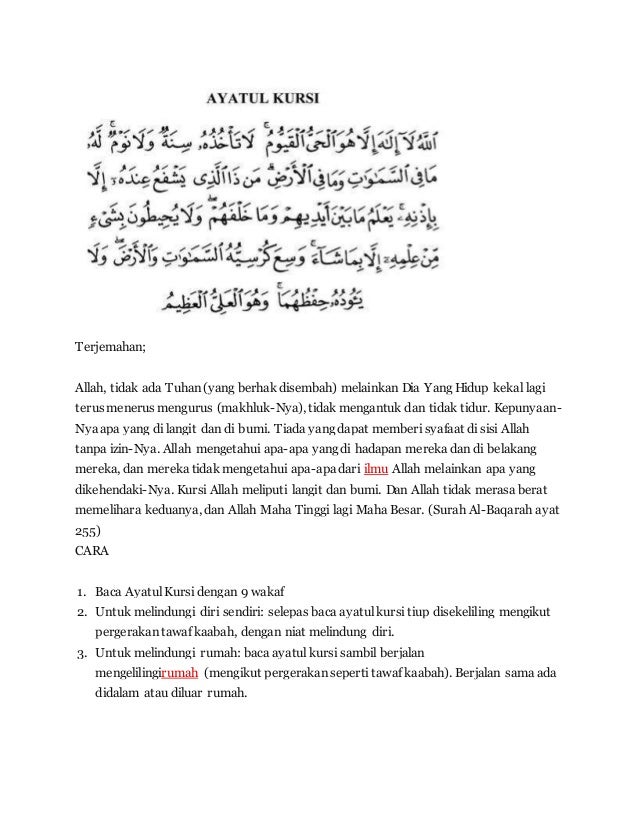 AYATUL KURSI
اللَّهُ لَا إِلَٰهَ إِلَّا هُوَ الْحَيُّ الْقَيُّومُ ۚ لَا تَأْخُذُهُ سِنَةٌ وَلَا نَوْمٌ ۚ لَّهُ
مَا فِي السَّمَاوَاتِ وَمَا فِي الْأَرْضِ ۗ مَن ذَا الَّذِي يَشْفَعُ عِندَهُ إِلَّا
بِإِذْنِهِ ۚ يَعْلَمُ مَا بَيْنَ أَيْدِيهِمْ وَمَا خَلْفَهُمْ ۖ وَلَا يُحِيطُونَ بِشَيْءٍ
مِّنْ عِلْمِهِ إِلَّا بِمَا شَاءَ ۚ وَسِعَ كُرْسِيُّهُ السَّمَاوَاتِ وَالْأَرْضَ ۖ وَلَا
يَئُودُهُ حِفْظُهُمَا ۚ وَهُوَ الْعَلِيُّ الْعَظِيمُ
Terjemahan;
Allah, tidak ada Tuhan (yang berhak disembah) melainkan Dia Yang Hidup kekal lagi
terus menerus mengurus (makhluk-Nya), tidak mengantuk dan tidak tidur. Kepunyaan-
Nya apa yang di langit dan di bumi. Tiada yang dapat memberi syafaat di sisi Allah
tanpa izin-Nya. Allah mengetahui apa-apa yang di hadapan mereka dan di belakang
mereka, dan mereka tidak mengetahui apa-apa dari ilmu Allah melainkan apa yang
dikehendaki-Nya. Kursi Allah meliputi langit dan bumi. Dan Allah tidak merasa berat
memelihara keduanya, dan Allah Maha Tinggi lagi Maha Besar. (Surah Al-Baqarah ayat
255)
CARA
1. Baca Ayatul Kursi dengan 9 wakaf
2. Untuk melindungi diri sendiri: selepas baca ayatul kursi tiup disekeliling mengikut
pergerakan tawaf kaabah, dengan niat melindung diri.
3. Untuk melindungi rumah: baca ayatul kursi sambil berjalan
mengelilingirumah (mengikut pergerakan seperti tawaf kaabah). Berjalan sama ada
didalam atau diluar rumah.